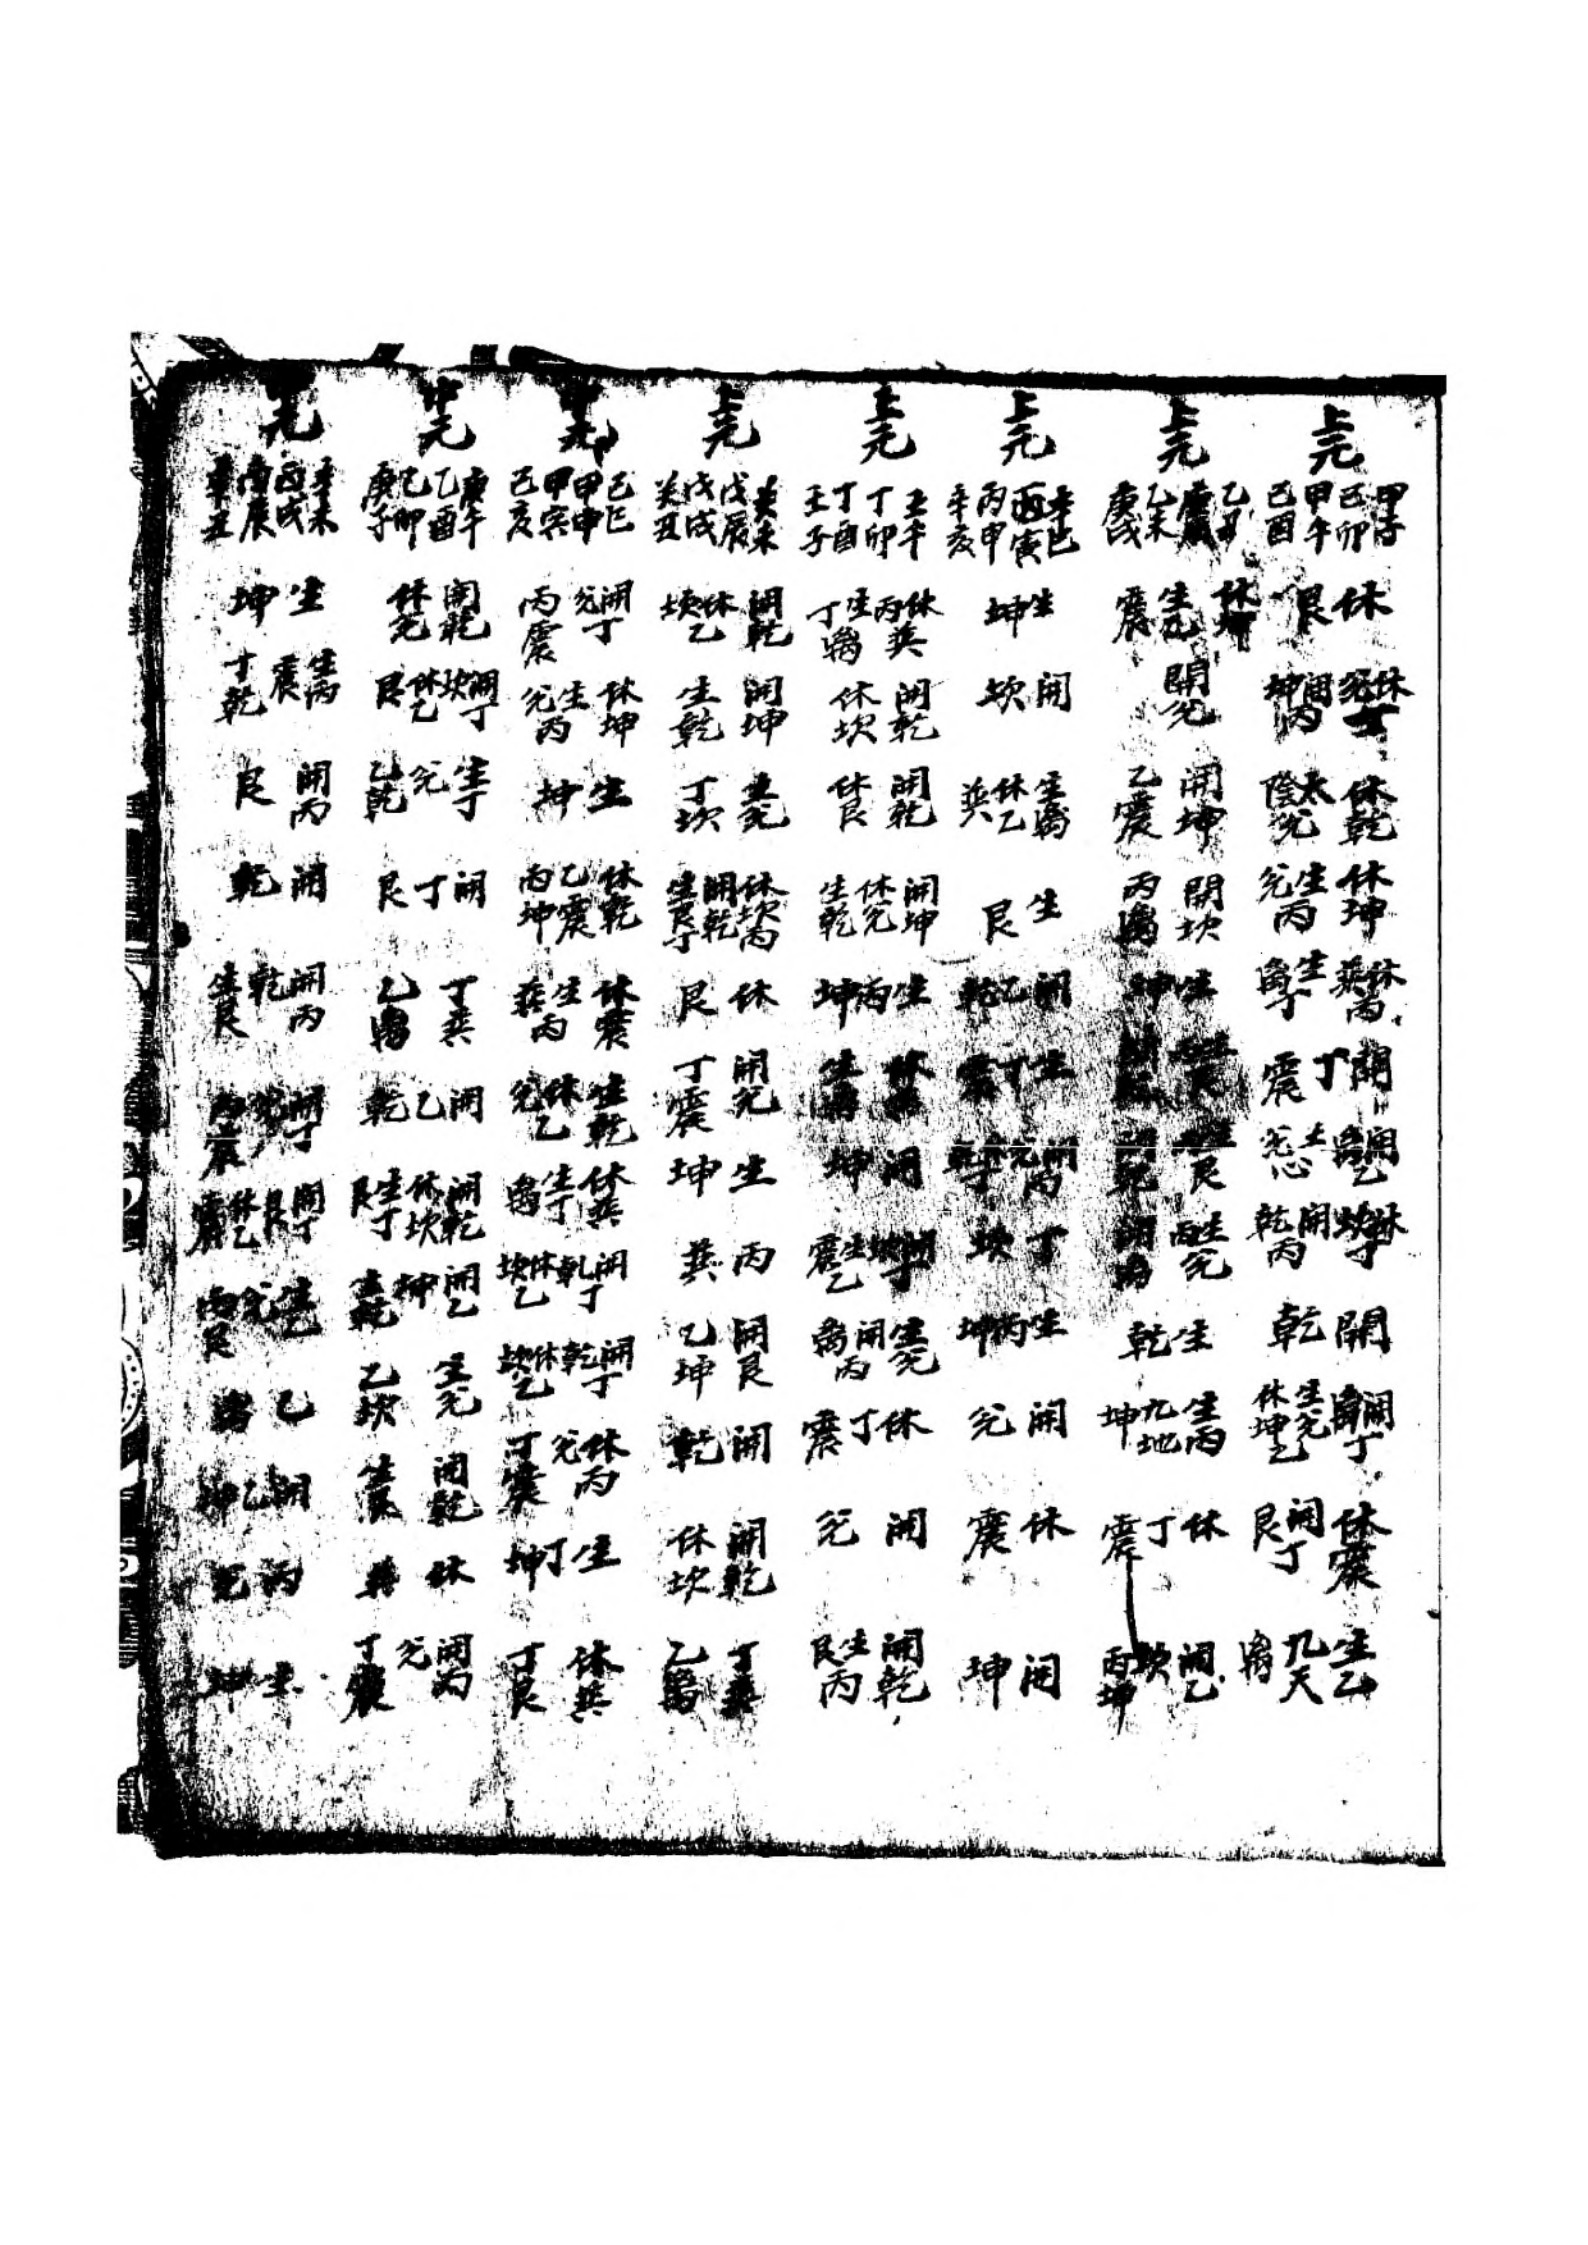 上元
甲子 己卯 甲午 己酉
休艮
休丁兊 開丙坤
休乾 太陰兊
休坤 生丙兊
休丙㢲 生丁离
開丁震
開乙离 兊
休丁坎 開丙乾
開乾
開丁离 生兊 休坤乙
休震 開丁艮
生乙九天离
上元
乙丑 庚辰 乙未 庚戌
休坤 生兊 震
開兊
開坤 乙震
開坎 丙离
生坤
艮
艮 乾
生兊丙
生乾
生丙九地坤
休丁震
開乙坎 丙坤
上元
辛巳 丙寅 丙申 辛亥
生坤
開坎
生离 休乙㢲
生艮
開乙乾
生丁震
開丙
丁坎
生丙坤
開兊
休震
開坤
上元
壬午 丁卯 丁酉 壬子
休㢲丙 生离丁
開乾 休坎
開乾 休艮
開坤 休兊 生乾
生丙坤
休 生
開坤
開丁坎 生乙震
生兊 開丙离
休丁震
開兊
開乾 生丙艮
上元
癸未 戊辰 戊戌 癸丑
開乾 休乙坎
開坤 生乾
生兊 丁坎
休坎丙 開乾 生艮丁
休艮
開兊 丁震
生坤
丙㢲
開艮 乙坤
開乾
開乾 休坎
丁㢲 乙离
中元
己巳 甲申 甲寅 己亥
開丁兊 丙震
休坤 生丙兊
生坤
休乾 乙震 丙坤
休震 生丙㢲
生乾 休乙兊
休㢲 生丁离
開丁乾 休乙坎
開丁乾 休乙坎
休丙兊 丁震
生丁坤
休㢲 丁艮
中元
庚午 乙酉 乙卯 庚子
開乾 休兊
開丁坎 休乙艮
生丁兊 乙乾
開丁艮
丁㢲 乙离
開乙乾
開乾 休坎 生丁艮
開乙坤 生乾
生兊 乙坎
開乾 生艮
休
開丙兊 丁震
中元
辛未 丙戌 丙辰 辛丑
生坤
生丙震 丁乾
開丙艮
開乾
開丙乾 生艮
開丁兊 丙震
開丁艮 休乙震
生乙兊 丙艮
乙
開乙坤
丙兊
生坤